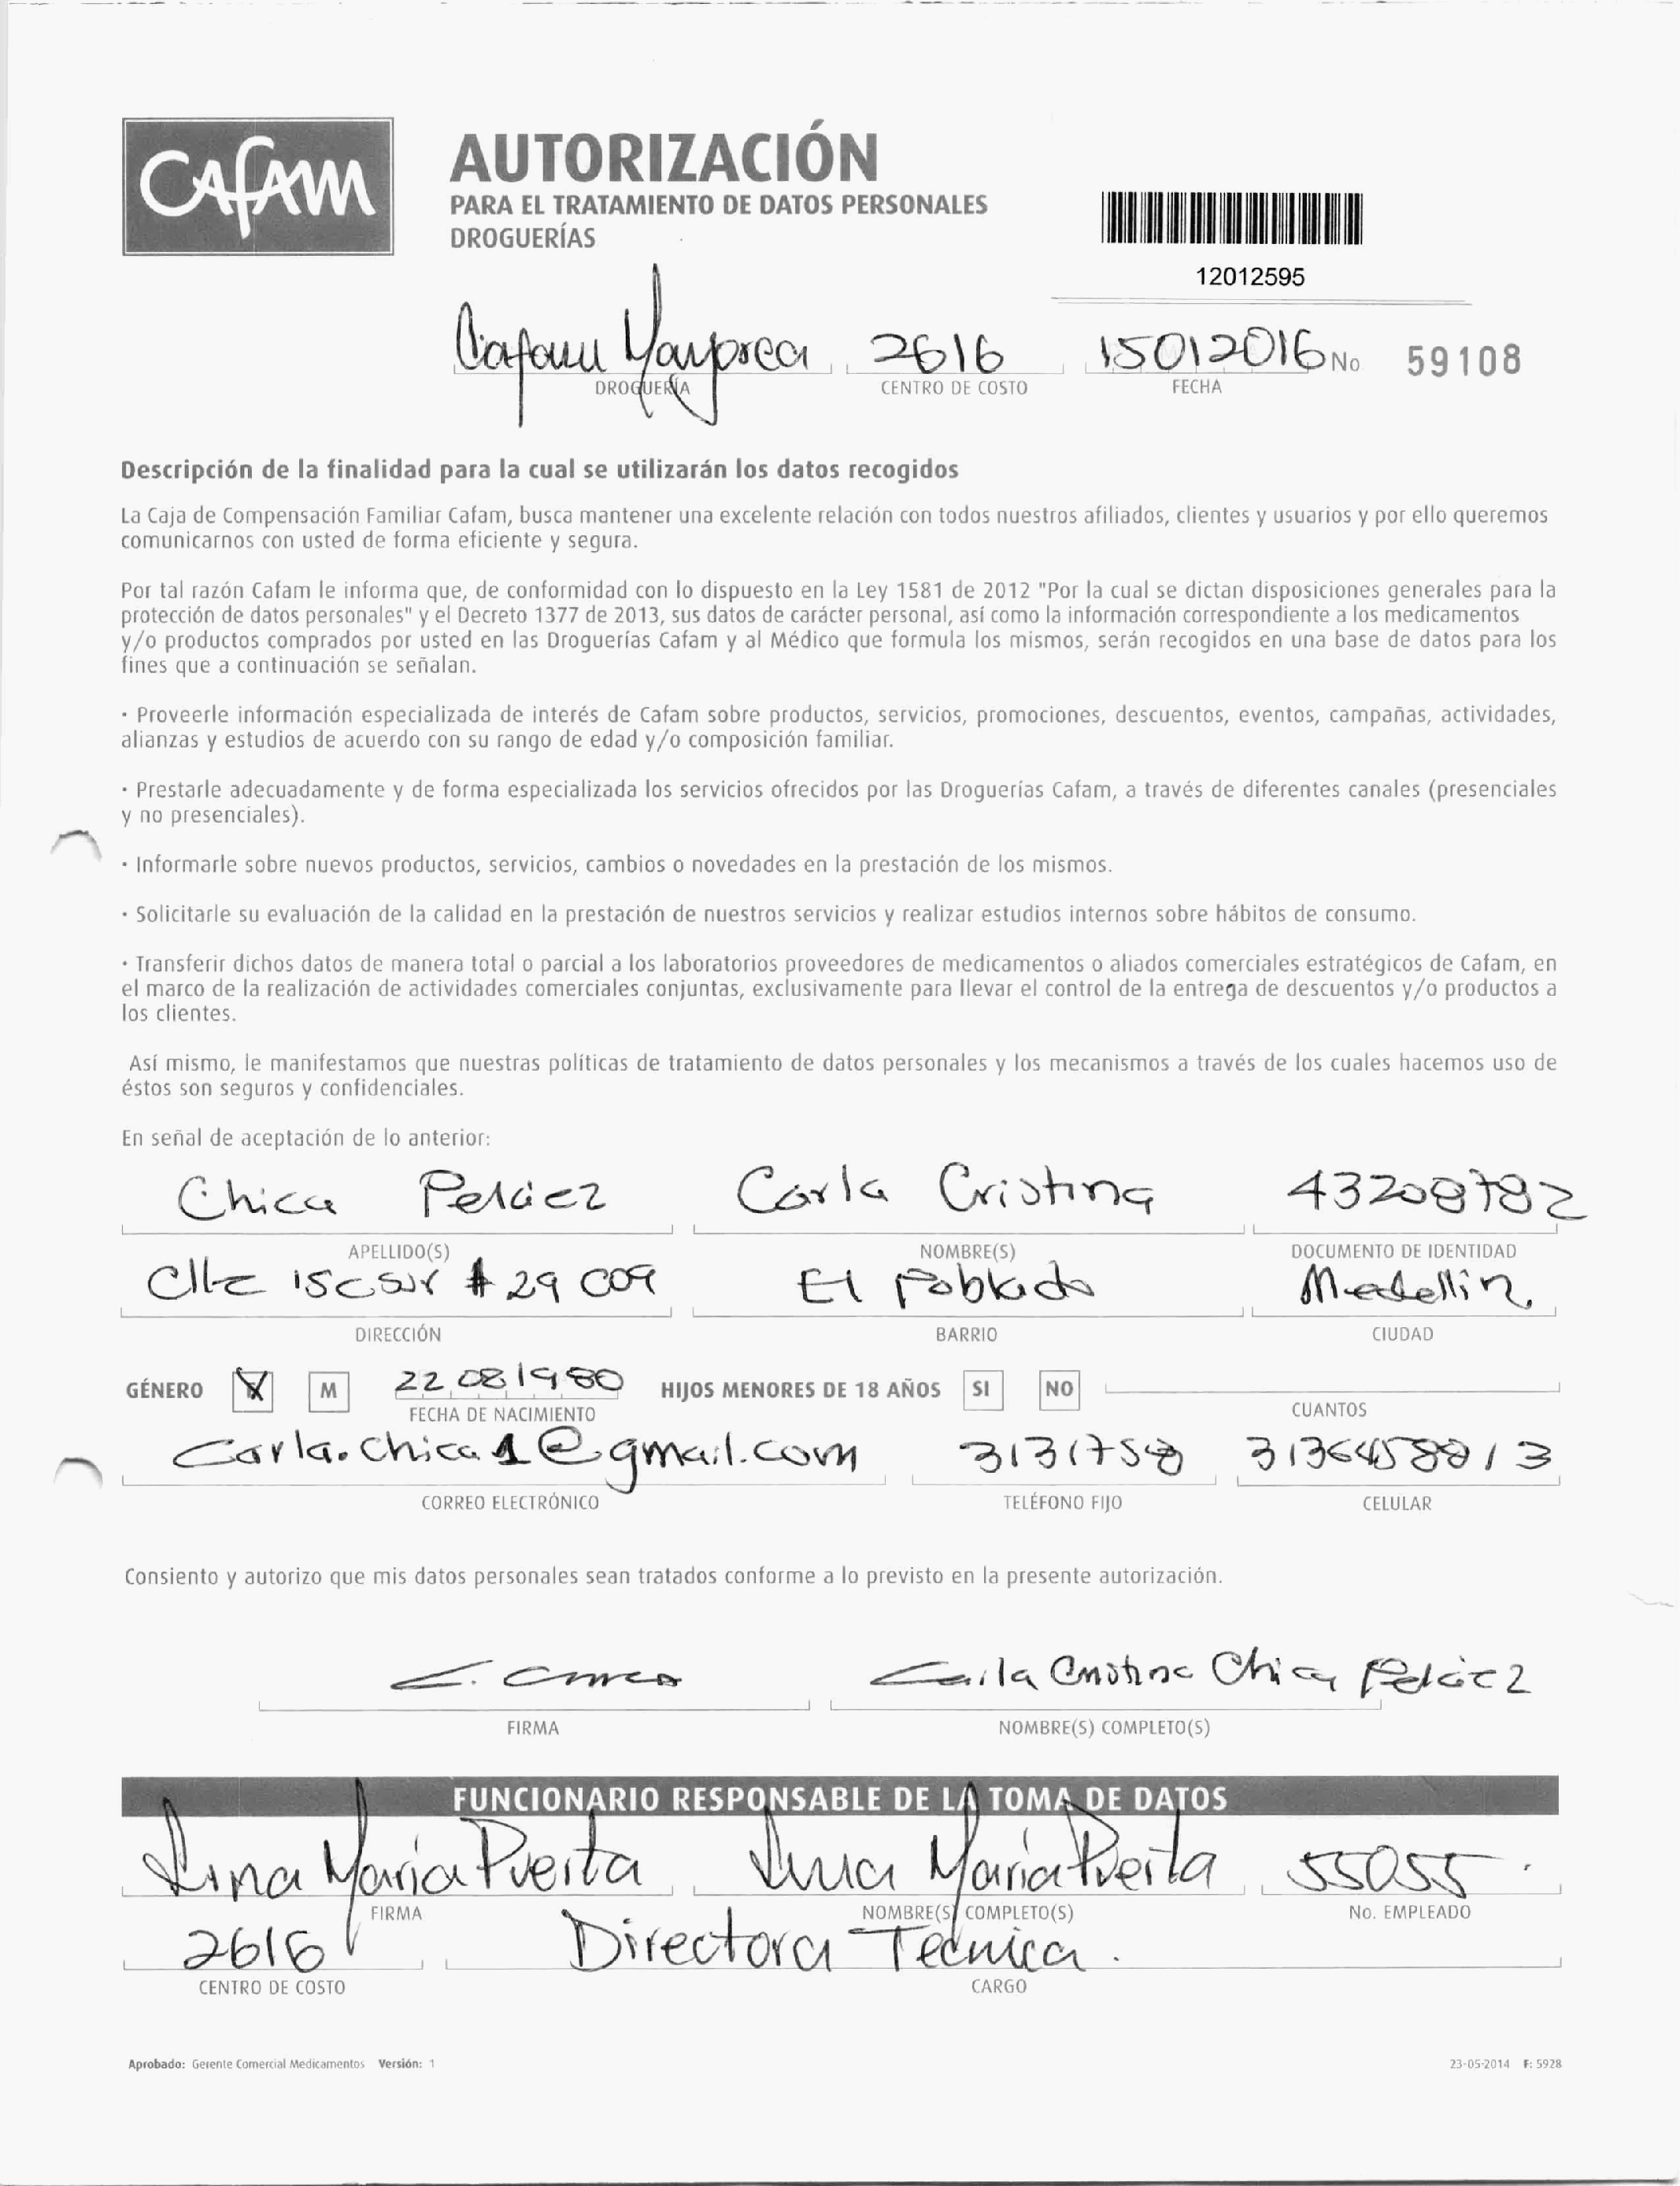 CAFAM
AUTORIZACIÓN
PARA EL TRATAMIENTO DE DATOS PERSONALES
DROGUERÍAS
12012595
Cafam 2616 15012016 No 59108
DROGUERÍA CENTRO DE COSTO FECHA
Descripción de la finalidad para la cual se utilizarán los datos recogidos
La Caja de Compensación Familiar Cafam, busca mantener una excelente relación con todos nuestros afiliados, clientes y usuarios y por ello queremos
comunicarnos con usted de forma eficiente y segura.
Por tal razón Cafam le informa que, de conformidad con lo dispuesto en la Ley 1581 de 2012 "Por la cual se dictan disposiciones generales para la
protección de datos personales" y el Decreto 1377 de 2013, sus datos de carácter personal, así como la información correspondiente a los medicamentos
y/o productos comprados por usted en las Droguerías Cafam y al Médico que formula los mismos, serán recogidos en una base de datos para los
fines que a continuación se señalan.
· Proveerle información especializada de interés de Cafam sobre productos, servicios, promociones, descuentos, eventos, campañas, actividades,
alianzas y estudios de acuerdo con su rango de edad y/o composición familiar.
· Prestarle adecuadamente y de forma especializada los servicios ofrecidos por las Droguerías Cafam, a través de diferentes canales (presenciales
y no presenciales).
· Informarle sobre nuevos productos, servicios, cambios o novedades en la prestación de los mismos.
· Solicitarle su evaluación de la calidad en la prestación de nuestros servicios y realizar estudios internos sobre hábitos de consumo.
· Transferir dichos datos de manera total o parcial a los laboratorios proveedores de medicamentos o aliados comerciales estratégicos de Cafam, en
el marco de la realización de actividades comerciales conjuntas, exclusivamente para llevar el control de la entrega de descuentos y/o productos a
los clientes.
Así mismo, le manifestamos que nuestras políticas de tratamiento de datos personales y los mecanismos a través de los cuales hacemos uso de
éstos son seguros y confidenciales.
En señal de aceptación de lo anterior:
Chica Peláez Carla Cristina 43208782
APELLIDO(S) NOMBRE(S) DOCUMENTO DE IDENTIDAD
Clle 15c sur # 29 c09 El Poblado Medellin.
DIRECCIÓN BARRIO CIUDAD
GÉNERO M 22 08 1980 HIJOS MENORES DE 18 AÑOS SI NO
FECHA DE NACIMIENTO CUANTOS
Carla.chica1@gmail.com 3131758 3136458813
CORREO ELECTRÓNICO TELÉFONO FIJO CELULAR
Consiento y autorizo que mis datos personales sean tratados conforme a lo previsto en la presente autorización.
Carla Cristina Chica Peláez
FIRMA NOMBRE(S) COMPLETO(S)
FUNCIONARIO RESPONSABLE DE LA TOMA DE DATOS
Lina Maria Puerta Lina Maria Puerta 55055
FIRMA NOMBRE(S) COMPLETO(S) No. EMPLEADO
2616 Directora Tecnica.
CENTRO DE COSTO CARGO
Aprobado: Gerente Comercial Medicamentos Versión: 1 23-05-2014 F: 5928